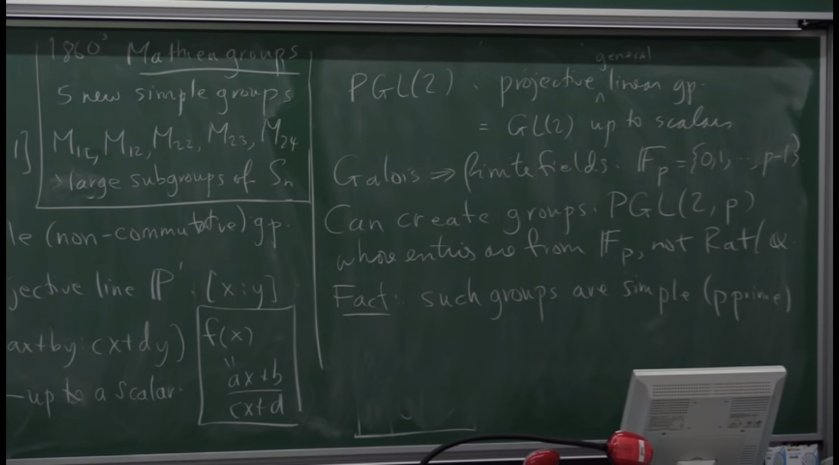 1860's Mathieu groups
5 new simple groups
M11, M12, M22, M23, M24
large subgroups of Sn
1]
le (non-commutative) gp.
jective line P' : [x:y]
ax+by: cx+dy)
-up to a scalar.
f(x)
"
ax+b
cx+d
PGL(2) . projective general linear gp.
= GL(2) up to scalars
Galois ⇒ finite fields. Fp = {0,1,...,p-1}
Can create groups. PGL(2,p)
whose entries are from Fp, not
Fact: such groups are simple (p prime)